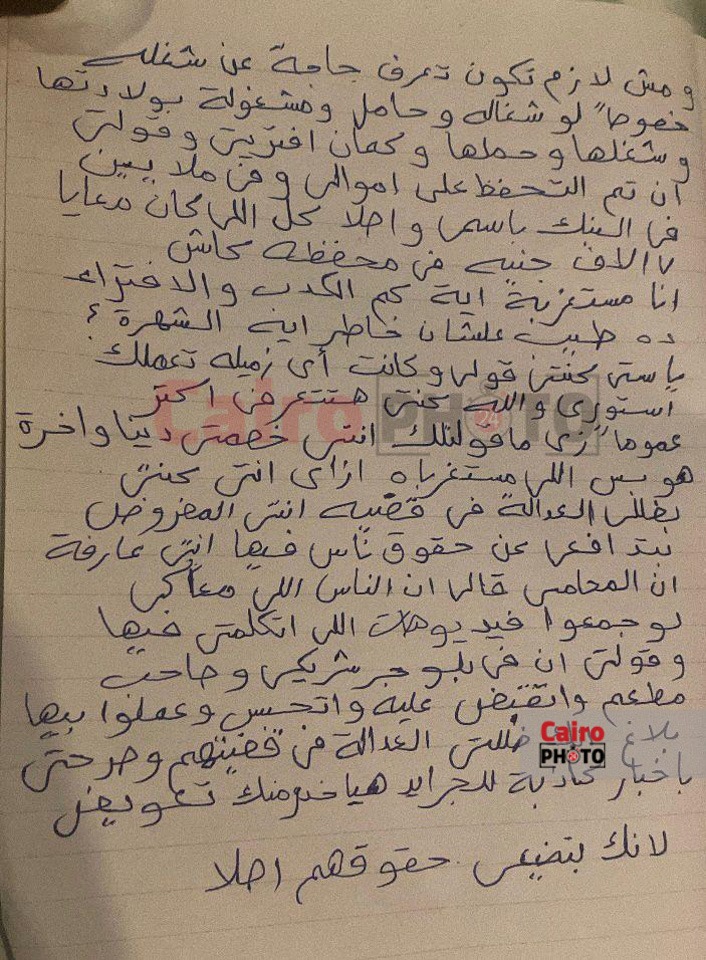 ومش لازم تكون تعرف حاجة عن شغله
خصوصاً لو شغاله وحامل ومشغولة بولادتها
وشغلها وحملها وكمان افتريتى وقولتى
ان تم التحفظ على اموالى وفى ملايين
فى البنك باسمى واصلا كل اللى كان معايا
٧ الاف جنيه فى محفظه كاش
انا مستغربة اية كم الكدب والافتراء
ده طيب علشان خاطر ايه الشهرة ؟
ياستى كنتى قولى وكانت أى زميله تعملك
استورى والله كنتى هتتعرضى اكتر
عموماً زى ماقولتلك انتى خصمتى دنيا واخرة
هو بس اللى مستغرباه ازاى انتى كنتى
بظللى العدالة فى قضيه انتى المفروض
بتدافعى عن حقوق ناس فيها انتى عارفة
ان المحامى قالى ان الناس اللى معاكى
لو جمعوا فيديوهات اللى اتكلمتى فيها
وقولتى ان فى بلوجر شريكى وصاحب
مطعم واتقبض عليه واتحبس وعملوا بيها
بلاغ ظللتى العدالة فى قضيتهم وصرحتى
باخبار كاذبة للجرايد هياخدو منك تعويض
لانك بتضيعى حقوقهم اصلا
Cairo 24
PHOTO
Cairo
PHOTO